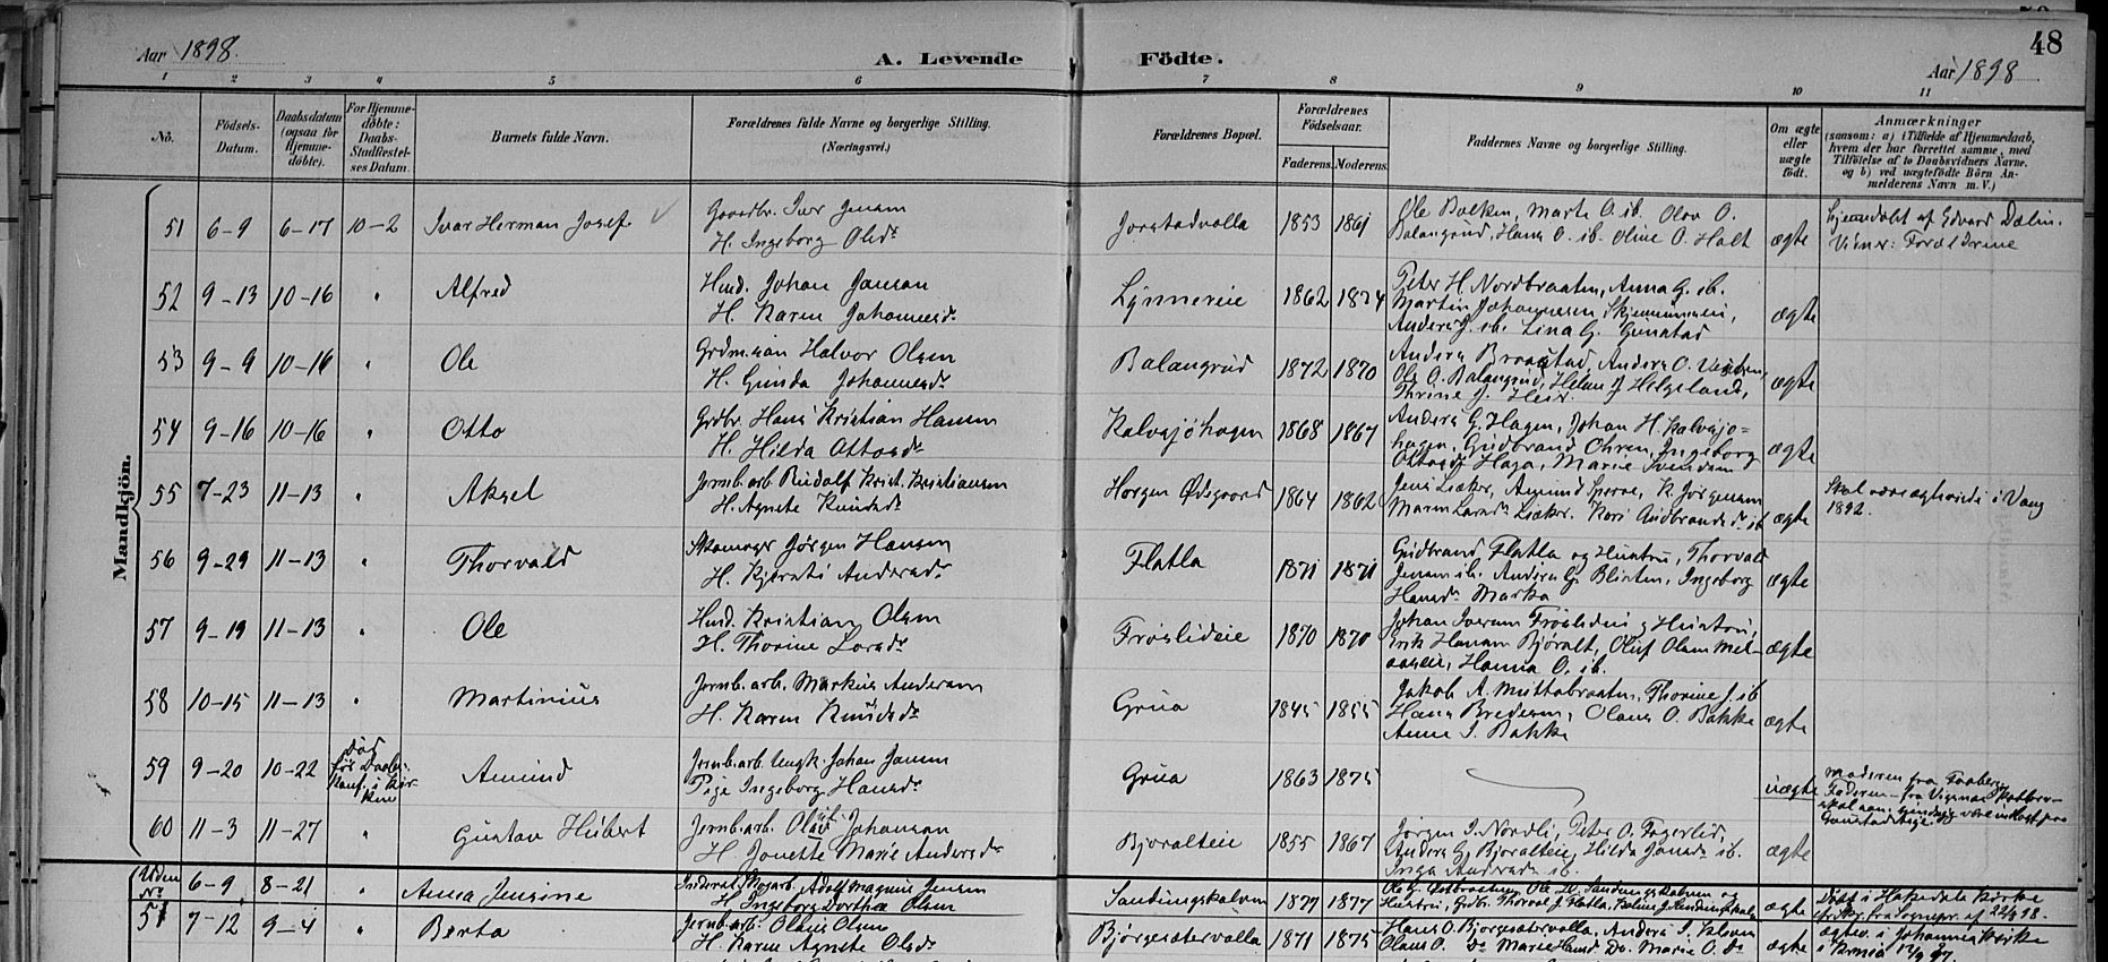 Aar 1898.
A. Levende Födte.
48
Aar 1898
1 2 3 4 5 6 7 8 9 10 11
No.
Födsels-
Datum.
Daabsdatum
(ogsaa for
Hjemme-
döbte).
For Hjemme-
döbte:
Daabs-
Stadfæstel-
ses Datum.
Barnets fulde Navn.
Forældrenes fulde Navne og borgerlige Stilling.
(Næringsvei.)
Forældrenes Bopæl.
Forældrenes
Födselsaar.
Faderens. Moderens.
Faddernes Navne og borgerlige Stilling.
Om ægte
eller
uægte
født.
Anmærkninger
(saasom: a) i Tilfælde af Hjemmedaab,
hvem der har forrettet samme, med
Tilföielse af to Daabsvidners Navne,
og b) ved uægtefödte Börn An-
melderens Navn m. V.)
Mandkjön.
51 6-9 6-17 10-2 Ivar Herman Josef
Gaardbr. Iver Jensen
H. Ingeborg Olsdr
Jorstadvolla 1853 1861
Ole Bakken, Marte O. ib. Olav O.
Balangrud, Hans O. ib. Oline O. Holt
ægte
Hjemdøbt af Edvard Dælin.
52 9-13 10-16 " Alfred
Husd. Johan Jansen
H. Karen Johannesdr
Lynnereie 1862 1874
Peter H. Nordbraaten, Anna G. ib.
Martin Johannesen
Anders J. ib. Lina G. Gunstad
ægte
53 9-9 10-16 " Ole
Grdm.søn Halvor Olsen
H. Gunda Johannesdr
Balangrud 1872 1870
Anders Braastad, Anders O.
Ole O. Balangrud, Helene J Helgeland,
Thrine J.
ægte
54 9-16 10-16 " Otto
Grdbr. Hans Kristian Hansen
H. Hilda Ottosdr
Kalvsjöhagen 1868 1867
Anders G. Hagen, Johan H. Kalvsjo=
hagen, Gudbrand Ohren, Ingeborg
Ottosdr Haga, Marie Svendsen
ægte
55 7-23 11-13 " Aksel
Jernb. arb Rudolf Krist. Kristiansen
H. Agnete Knudsdr
Horgen Ødegaard 1864 1862
Jens Liaker, Amund K. Jörgensen
Maren Larsdr Liaker. Kari Gudbrandsdr ib
ægte
Skal være ægteviede i Vang
1892.
56 9-29 11-13 " Thorvald
Skomager Jörgen Hansen
H. Kjersti Andersdr
Flatla 1871 1871
Gudbrand Flatla og Hustru, Thorvald
Jensen ib. Anders G. Ingeborg
Hansdr Marka
ægte
57 9-19 11-13 " Ole
Husd. Kristian Olsen
H. Thorine Larsdr
Fröislideie 1870 1870
Johan Iversen Fröislideie og Hustru,
Erik Hansen Björalt, Oluf Olsen
Hanna O. ib.
ægte
58 10-15 11-13 " Martinius
Jernb. arb. Markus Andersen
H. Karen Knudsdr
Grua 1845 1855
Jakob A. Muttabraaten, Thorine J. ib
Hans Bredesen, Olaus O. Bakke
Anne I. Bakke
ægte
59 9-20 10-22
död
för Daabs-
Kanf. i Kir-
ken
Amund
Jernb. arb. Ungk. Johan Jansen
Pige Ingeborg Hansdr
Grua 1863 1875
uægte
Moderen fra Faaberg
Faderen fra
60 11-3 11-27 " Gustav Hubert
Jernb. arb. Olav Johansen
H. Jonette Marie Andersdr
Bjoralteie 1855 1867
Jörgen I. Nordli, Peter O. Fagerlid,
Anders G. Bjoralteie, Hilda Jansdr ib.
Inga Andersdr ib.
ægte
Uden
No
6-9 8-21 " Anna Jensine
Adolf Magnus Jensen
H. Ingeborg Dorthea Olsen
Sandungskalven 1877 1877
ægte
Döbt i Hakedals Kirke
51 7-12 9-4 " Berta
Jernb. arb. Olaus Olsen
H. Karen Agnete Olsdr
Bjørgesætervolla 1871 1875
Hans O. Bjorgesætervolla, Anders I.
Olaus O. Do Marie Hansd. Do. Marie O. Do
ægte
ægtev. i Johannes Kirke